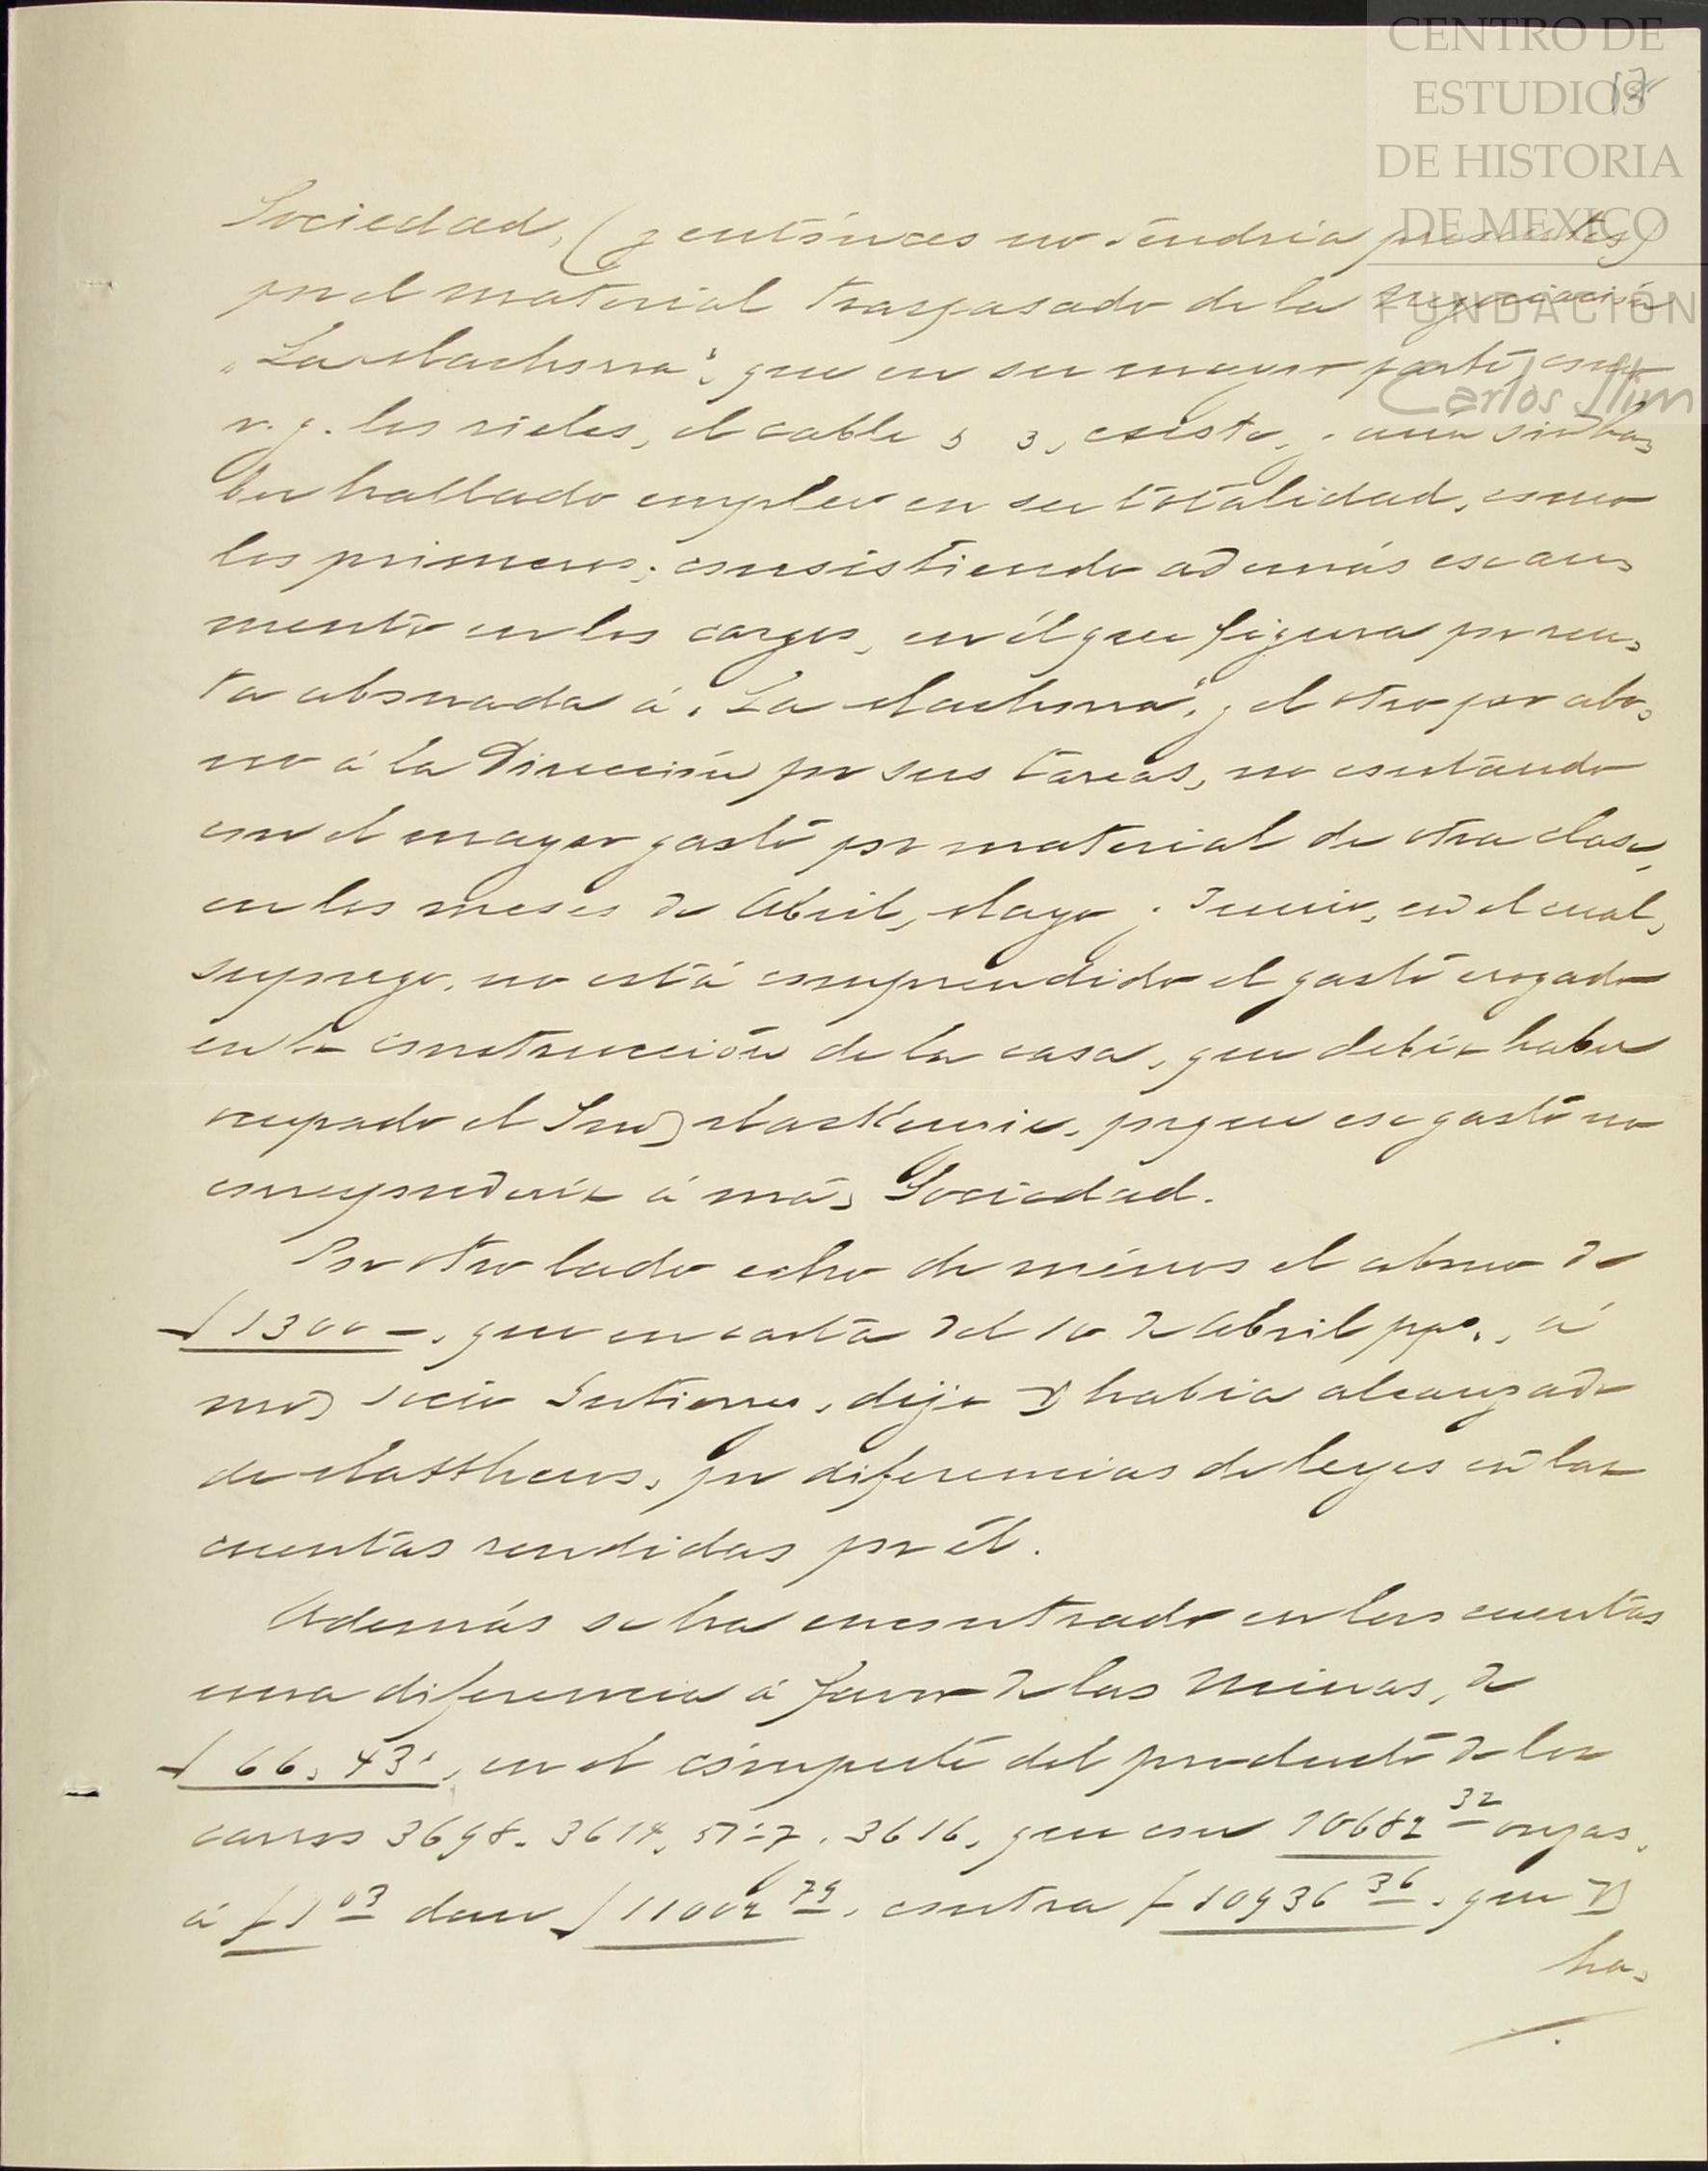 CENTRO DE
ESTUDIOS
DE HISTORIA
DE MEXICO
FUNDACIÓN
Carlos Slim
17
Sociedad, (y entónces no tendria presentes)
por el material traspasado de la Negociación
"La Machorra", que en su mayor parte, como
v. g. los rieles, el cable existe, y aún sin ha-
ber hallado empleo en su totalidad, como
los primeros; consistiendo además ese au-
mento en los cargos, en él que figura por ren-
ta abonada á "La Machorra", y el otro por abo-
no á la Dirección por sus tareas, no contando
con el mayor gasto por material de otra clase,
en los meses de Abril, Mayo y Junio, en el cual,
supongo, no está comprendido el gasto erogado
en la construcción de la casa, que debia haber
ocupado el Snr MacKenzie, porque ese gasto no
corresponderia á nra Sociedad.
Por otro lado echo de ménos el abono de
$ 1300 –, que en carta del 10 de Abril ppo., á
nro socio Gutierrez, dijo V habia alcanzado
de Matthews, por diferencias de leyes en las
cuentas rendidas por él.
Además se ha encontrado en las cuentas
una diferencia á favor de las Minas, de
$ 66,43, en el cómputo del producto de los
carros 3698, 3614, 3616, que con 10682 32 onzas,
á $ 1 03 dan $ 11002 79, contra $ 10936 36, que V
ha-